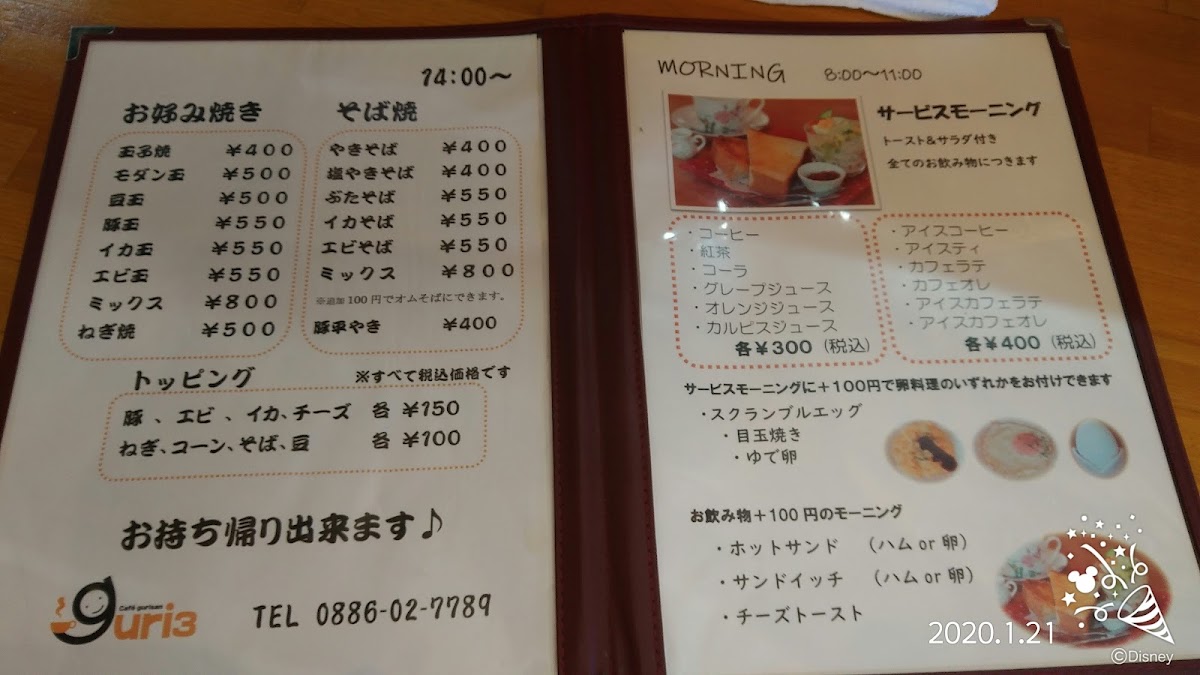 14:00～
お好み焼き
玉子焼 ￥400
モダン玉 ￥500
豆玉 ￥500
豚玉 ￥550
イカ玉 ￥550
エビ玉 ￥550
ミックス ￥800
ねぎ焼 ￥500
そば焼
やきそば ￥400
塩やきそば ￥400
ぶたそば ￥550
イカそば ￥550
エビそば ￥550
ミックス ￥800
※追加100円でオムそばにできます。
豚平やき ￥400
トッピング ※すべて税込価格です
豚、エビ、イカ、チーズ 各 ￥150
ねぎ、コーン、そば、豆 各 ￥100
お持ち帰り出来ます♪
Café gurisan
guri3
TEL 0886-02-7789
MORNING 8:00～11:00
サービスモーニング
トースト&サラダ付き
全てのお飲み物につきます
・コーヒー
・紅茶
・コーラ
・グレープジュース
・オレンジジュース
・カルピスジュース
各￥300（税込）
・アイスコーヒー
・アイスティ
・カフェラテ
・カフェオレ
・アイスカフェラテ
・アイスカフェオレ
各￥400（税込）
サービスモーニングに＋100円で卵料理のいずれかをお付けできます
・スクランブルエッグ
・目玉焼き
・ゆで卵
お飲み物＋100円のモーニング
・ホットサンド （ハム or 卵）
・サンドイッチ （ハム or 卵）
・チーズトースト
2020.1.21
©Disney